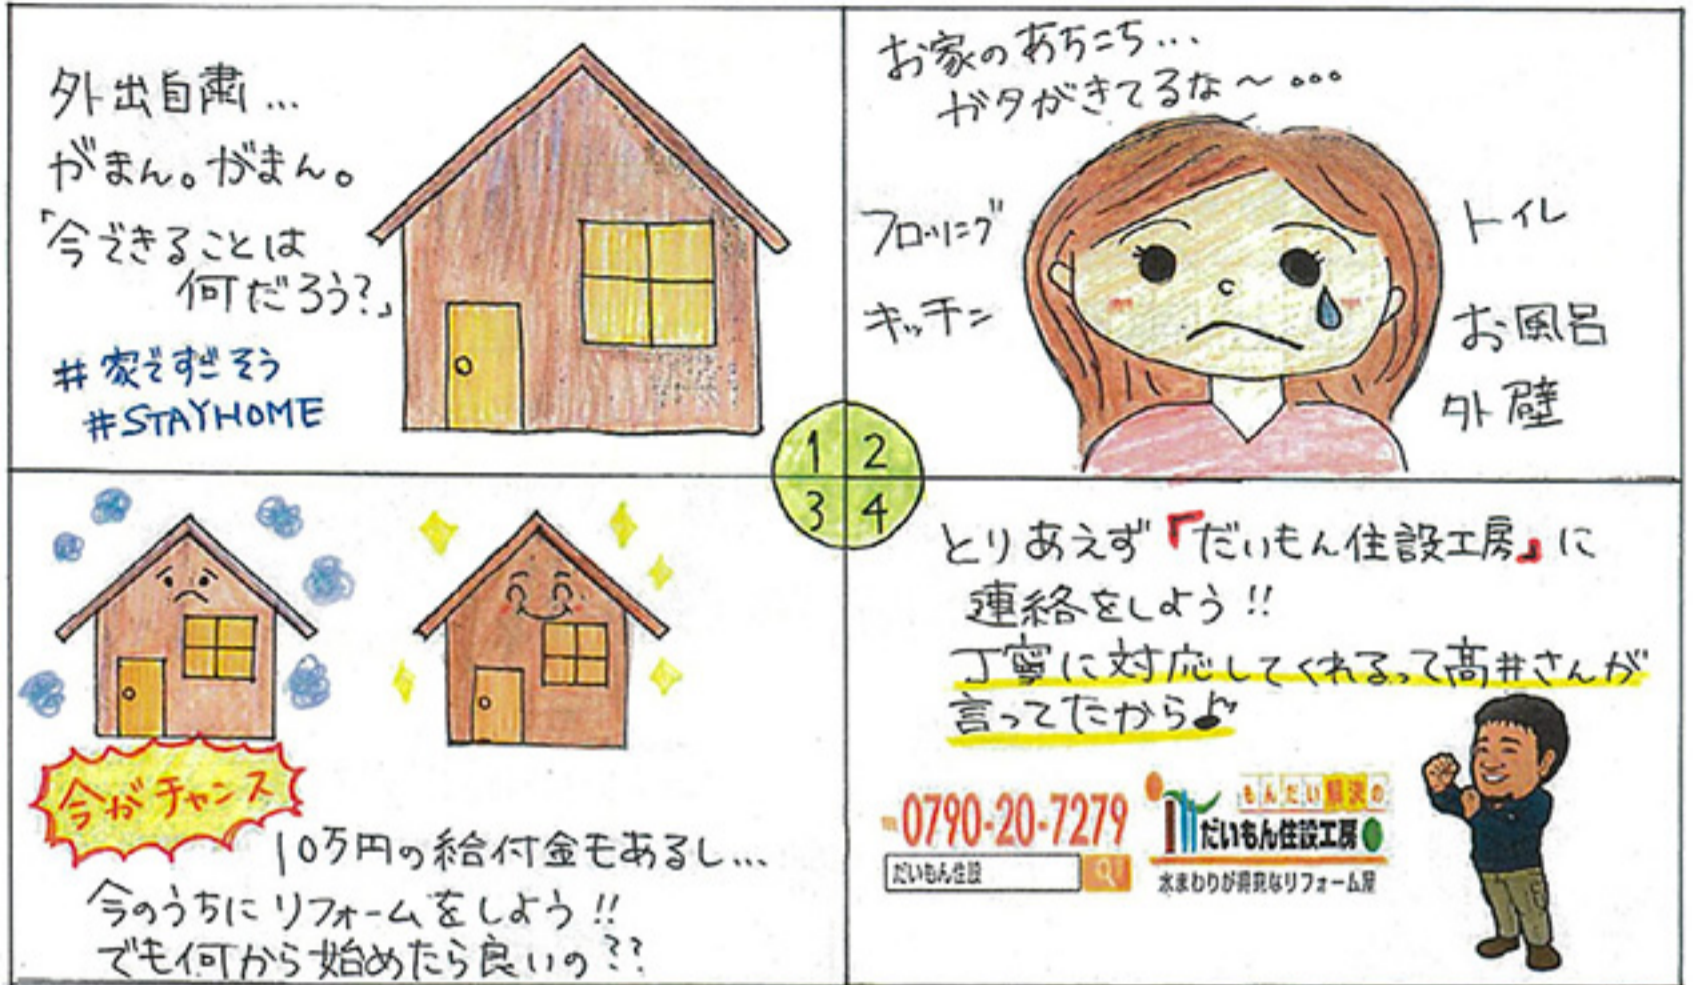 外出自粛...
がまん。がまん。
「今できることは
何だろう?」
#家ですごそう
#STAYHOME
お家のあちこち...
ガタがきてるな〜...
フローリング
キッチン
トイレ
お風呂
外壁
1 2
3 4
今がチャンス
10万円の給付金もあるし...
今のうちにリフォームをしよう!!
でも何から始めたら良いの??
とりあえず『だいもん住設工房』に
連絡をしよう!!
丁寧に対応してくれるって高井さんが
言ってたから♪
TEL 0790-20-7279
だいもん住設
もんだい解決の
だいもん住設工房
水まわりが得意なリフォーム屋